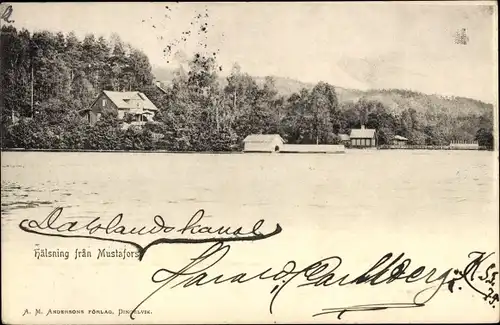 Dalslands kanal
Hälsning från Mustafors
Harald Carlberg
A. M. Andersons Förlag, Dingelvik.